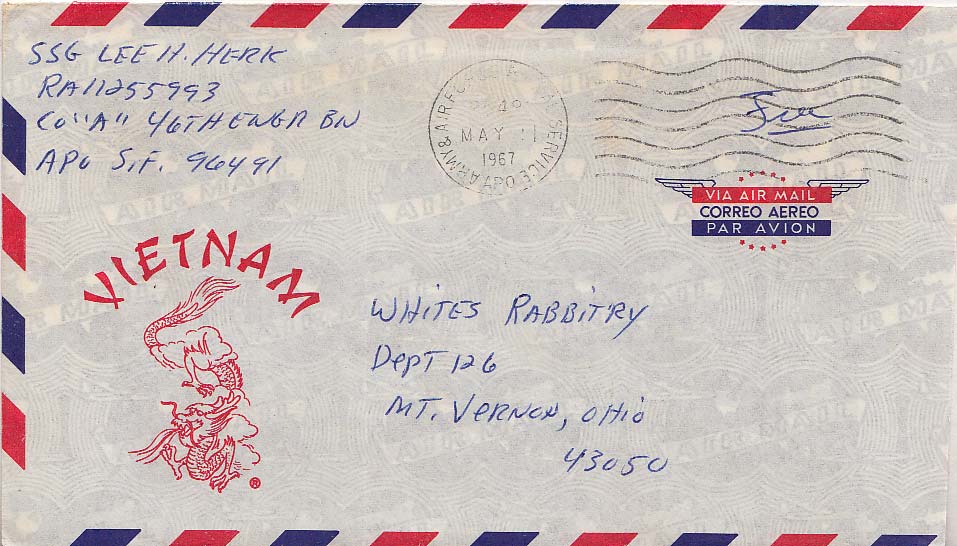 SSG LEE H. HERK
RA11255993
CO "A" 46TH ENGR BN
APO S.F. 96491
ARMY & AIR FORCE SERVICE APO
MAY 11
1967
Free
VIA AIR MAIL
CORREO AEREO
PAR AVION
VIETNAM
®
WHITES RABBITRY
DEPT 126
MT. VERNON, OHIO
43050